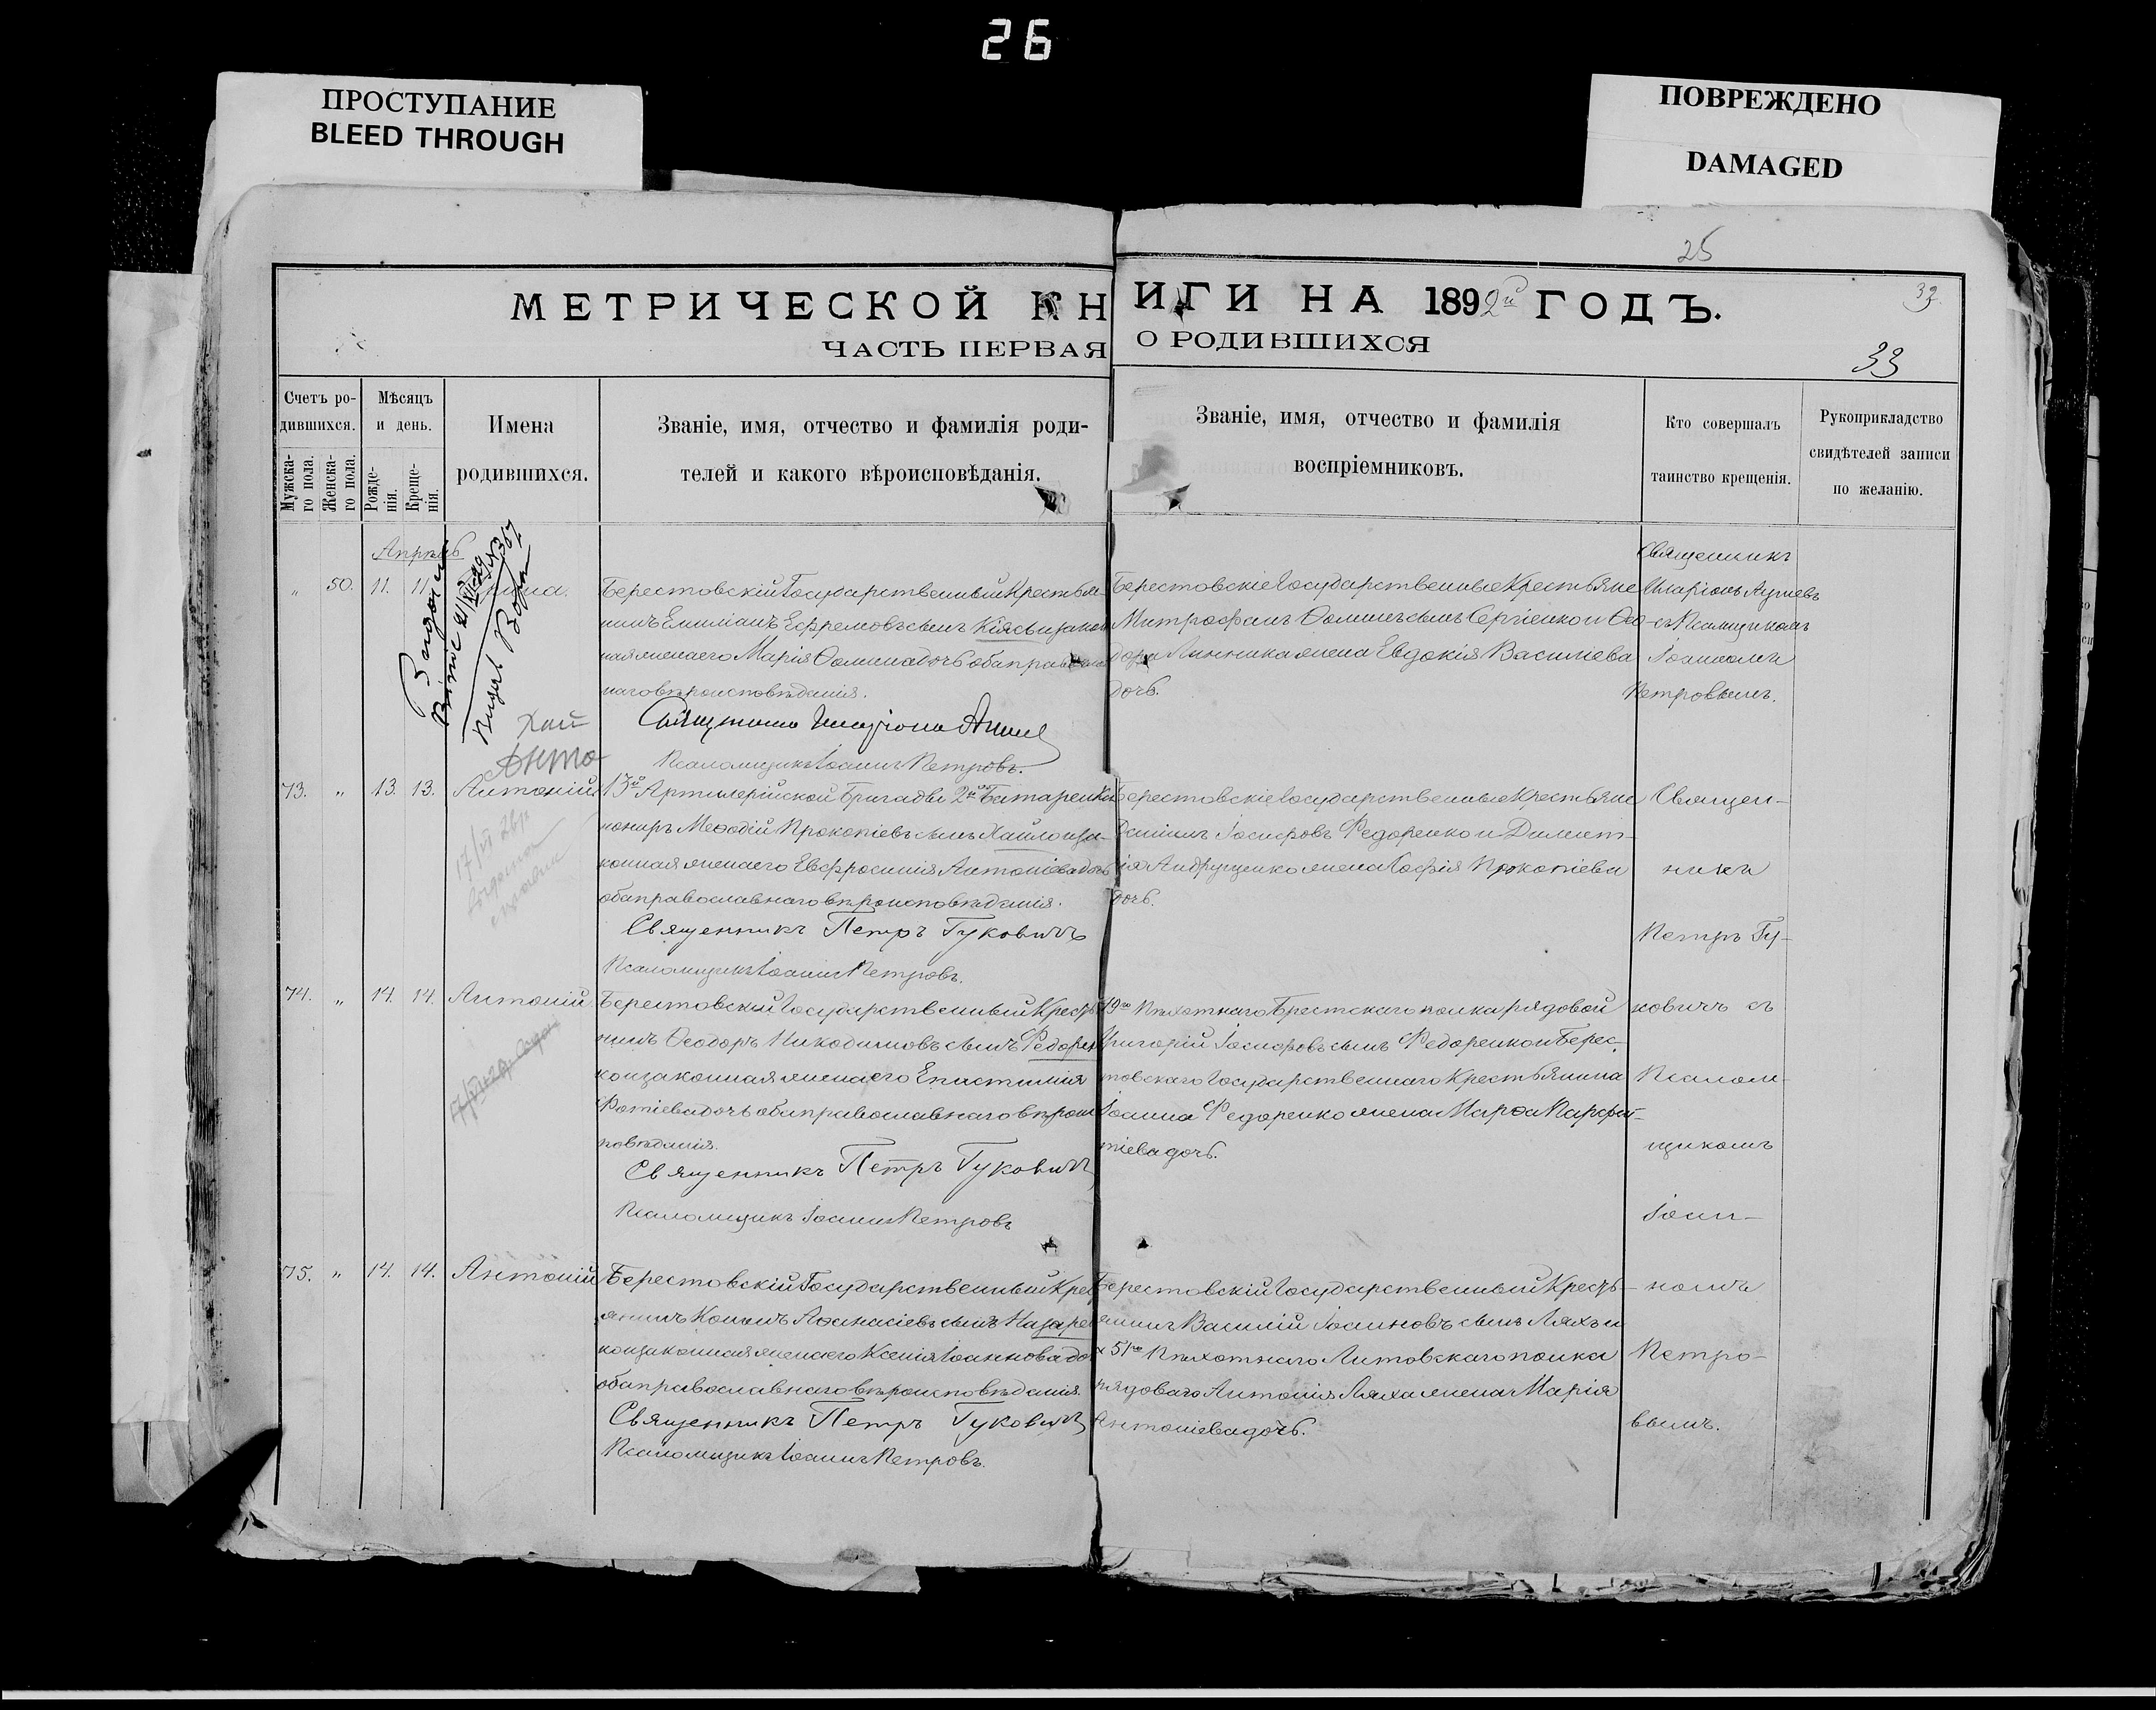 26
ПРОСТУПАНИЕ
BLEED THROUGH
ПОВРЕЖДЕНО
DAMAGED
25
МЕТРИЧЕСКОЙ КНИГИ НА 1892й ГОДЪ.
33.
ЧАСТЬ ПЕРВАЯ О РОДИВШИХСЯ
33
Счетъ ро-
дившихся.
Мужска-
го пола.
Женска-
го пола.
Мѣсяцъ
и день.
Рожде-
нія.
Креще-
нія.
Имена
родившихся.
Званіе, имя, отчество и фамилія роди-
телей и какого вѣроисповѣданія.
Званіе, имя, отчество и фамилія
воспріемниковъ.
Кто совершалъ
таинство крещенія.
Рукоприкладство
свидѣтелей записи
по желанію.
Апрѣль
„ 50. 11. 11.
Берестовскій Государственный Крестья-
нинъ Емиліанъ Ефремовъ сынъ Кіясь и закон
ная жена его Марія Ѳомина дочь оба православ
наго вѣроисповѣданія.
Псаломщикъ Іоаннъ Петровъ.
Берестовскіе Государственные Крестьяне
Митрофанъ Ѳоминъ сынъ Сергіенко и Ѳео-
дора Линника жена Евдокія Василіева
дочь.
Священникъ
Иларіонъ
съ Псаломщикомъ
Іоанномъ
Петровымъ.
Хай
Анто
73. „ 13. 13. Антоній
13й Артилерійской Бригады 2й Батареи Ка
нониръ Меѳодій Прокопіевъ сынъ Хайло и за-
конная жена его Евфросинія Антоніева дочь
оба православнаго вѣроисповѣданія.
Священникъ Петръ Гуковичъ
Псаломщикъ Іоаннъ Петровъ.
Берестовскіе Государственные Крестьяне
Іосифовъ Федоренко и Димит-
рія Андрущенко жена Софія Прокопіева
дочь.
74. „ 14. 14. Антоній
Берестовскій Государственный Кресть
нинъ Ѳеодоръ Никодимовъ сынъ Федорен
ко и законная жена его Епистимія
Фотіева дочь оба православнаго вѣроис
повѣданія.
Священникъ Петръ Гуковичъ
Псаломщикъ Іоаннъ Петровъ
19го Пѣхотнаго Брестскаго полка рядовой
Григорій Іосифовъ сынъ Федоренко и Берес-
товскаго Государственнаго Крестьянина
Іоанна Федоренко жена Марѳа Парфен-
тіева дочь.
75. „ 14. 14. Антоній
Берестовскій Государственный Крес
янинъ Кононъ Аѳанасіевъ сынъ Назаре
ко и законная жена его Ксенія Іоаннова до
оба православнаго вѣроисповѣданія.
Священникъ Петръ Гуковичъ
Псаломщикъ Іоаннъ Петровъ.
Берестовскій Государственный Кресть-
янинъ Василій Іоанновъ сынъ Ляхъ и
51го Пѣхотнаго Литовскаго полка
рядоваго Антонія Ляха жена Марія
Антоніева дочь.
Священ-
никъ
Петръ Гу-
ковичъ съ
Псалом-
щикомъ
Іоан-
номъ
Петро-
вымъ.